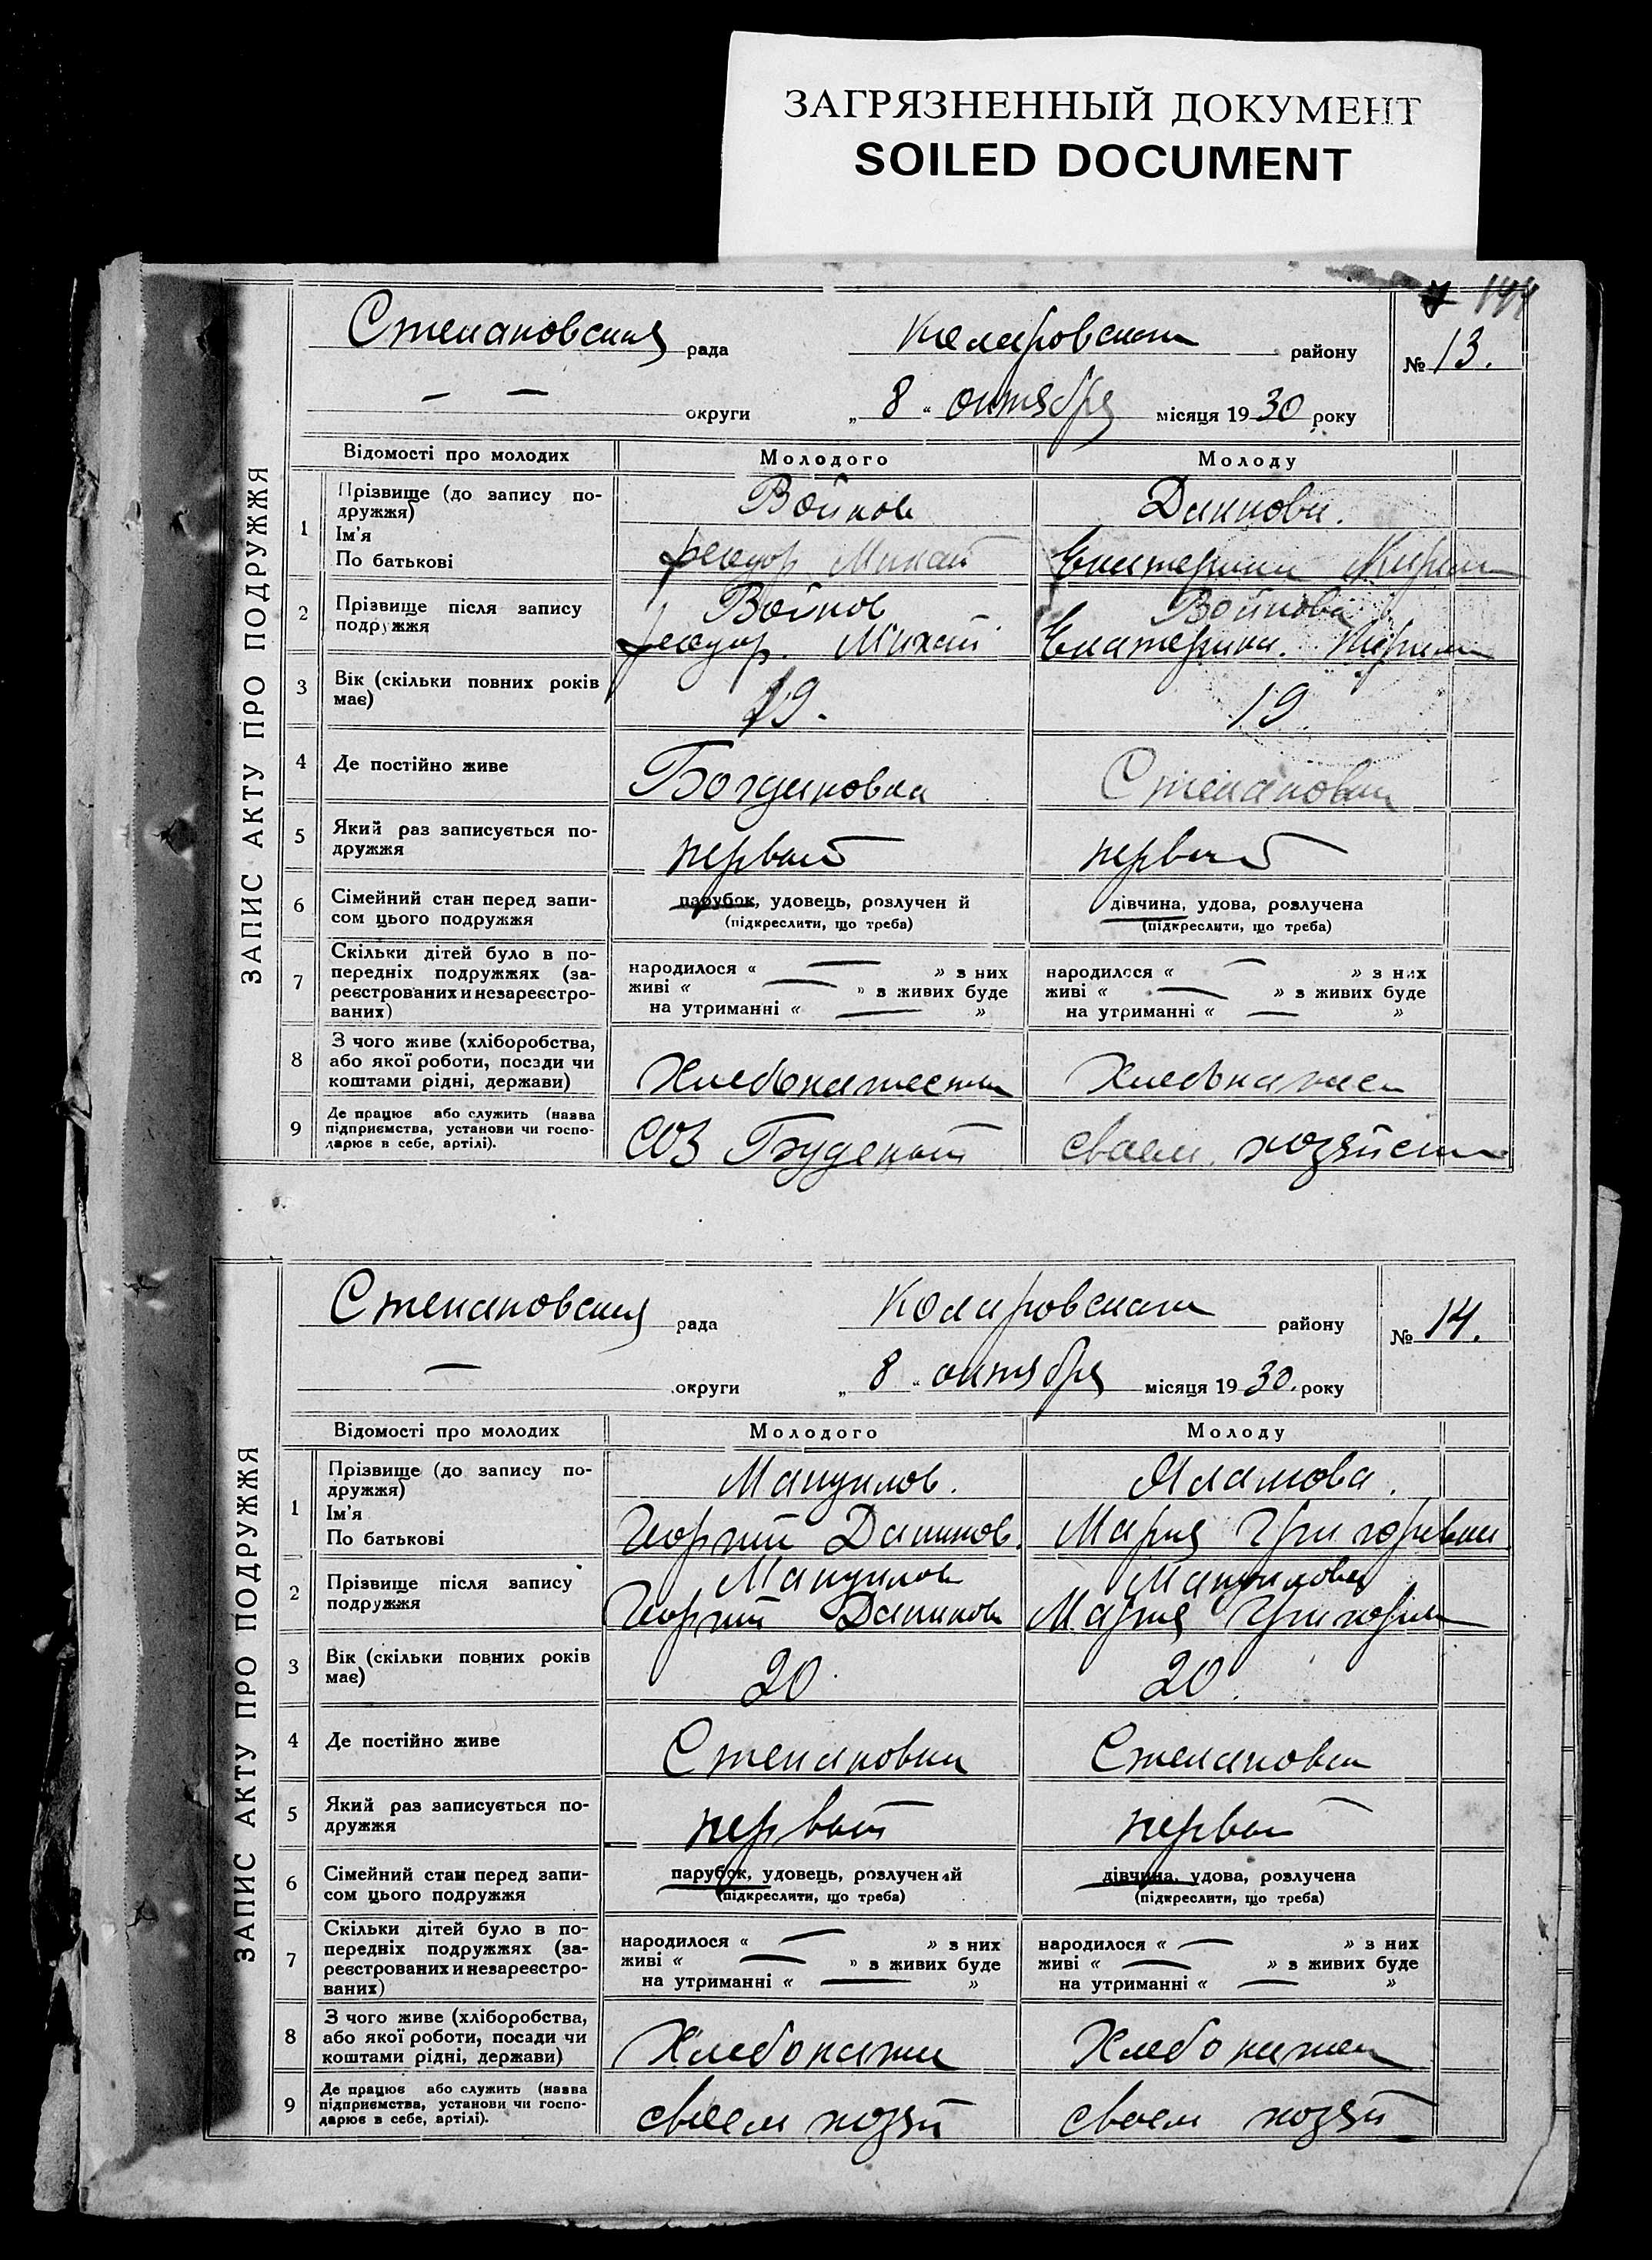 ЗАГРЯЗНЕННЫЙ ДОКУМЕНТ
SOILED DOCUMENT
144
ЗАПИС АКТУ ПРО ПОДРУЖЖЯ
Степановская рада Коларовского району № 13.
— — округи „ 8 “ октября місяця 1930 року
Відомості про молодих Молодого Молоду
1 Прізвище (до запису подружжя) Войнов
Ім'я
По батькові Федор Михай Екатерина Кирил
2 Прізвище після запису подружжя Войнов Войнова
Федор. Михай Екатерина. Кирил
3 Вік (скільки повних років має) 19. 19
4 Де постійно живе Богдановка Степановка
5 Який раз записується подружжя первый первый
6 Сімейний стан перед записом цього подружжя парубок, удовець, розлучен й дівчина, удова, розлучена
(підкреслити, що треба) (підкреслити, що треба)
7 Скільки дітей було в попередніх подружжях (зареєстрованих и незареєстрованих) народилося « — » з них народилося « — » з них
живі « — » з живих буде живі « — » з живих буде
на утриманні « — » на утриманні « — »
8 З чого живе (хліборобства, або якої роботи, посади чи коштами рідні, держави) Хлебопашест Хлебопашес
9 Де працює або служить (назва підприємства, установи чи господарює в себе, артілі). СОЗ Буденый своем хозяйст
ЗАПИС АКТУ ПРО ПОДРУЖЖЯ
Степановская рада Коларовского району № 14.
— округи „ 8 “ октября місяця 1930. року
Відомості про молодих Молодого Молоду
1 Прізвище (до запису подружжя) Мануилов.
Ім'я
По батькові Георгий Данилов. Мария Григоревна.
2 Прізвище після запису подружжя Мануилов Мануилова
Георгий Данилов Мария Григорев
3 Вік (скільки повних років має) 20. 20.
4 Де постійно живе Степановка Степановка
5 Який раз записується подружжя первый первый
6 Сімейний стан перед записом цього подружжя парубок, удовець, розлучений дівчина, удова, розлучена
(підкреслити, що треба) (підкреслити, що треба)
7 Скільки дітей було в попередніх подружжях (зареєстрованих и незареєстрованих) народилося « — » з них народилося « — » з них
живі « — » з живих буде живі « — » з живих буде
на утриманні « — » на утриманні « — »
8 З чого живе (хліборобства, або якої роботи, посади чи коштами рідні, держави) Хлебопаше Хлебопашец
9 Де працює або служить (назва підприємства, установи чи господарює в себе, артілі). своем хозяй своем хозяй